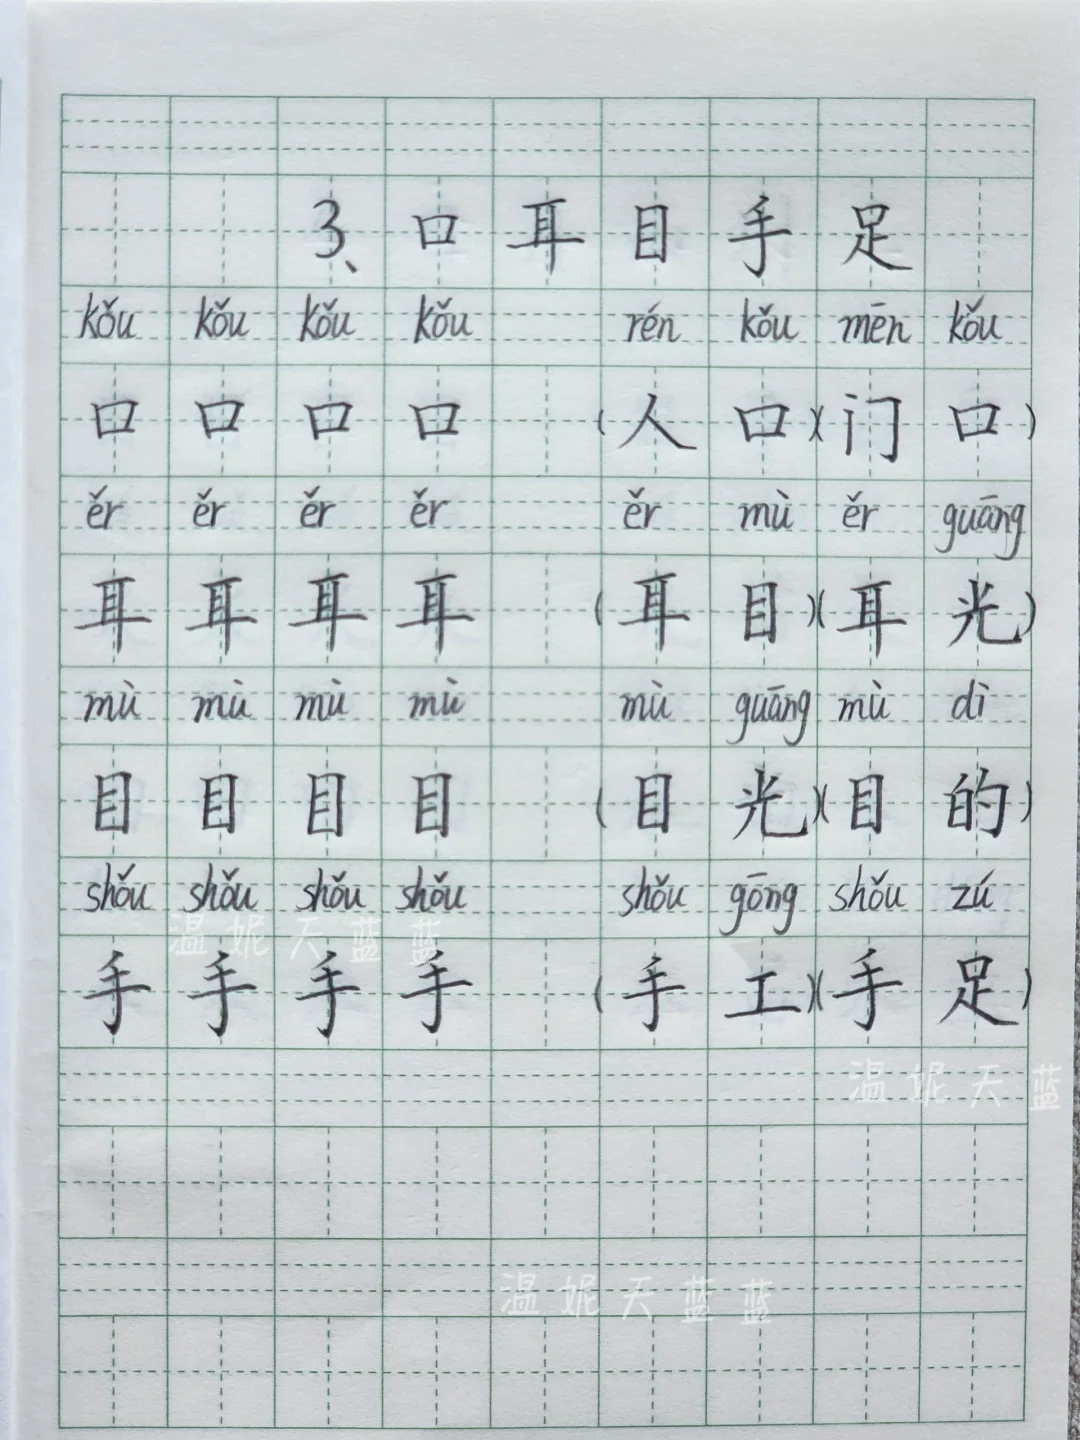 3、口耳目手足
kǒu kǒu kǒu kǒu rén kǒu mēn kǒu
口 口 口 口 (人口)(门口)
ěr ěr ěr ěr ěr mù ěr guāng
耳 耳 耳 耳 (耳目)(耳光)
mù mù mù mù mù guāng mù dì
目 目 目 目 (目光)(目的)
shǒu shǒu shǒu shǒu shǒu gōng shǒu zú
温妮天蓝蓝
手 手 手 手 (手工)(手足)
温妮天蓝
温妮天蓝蓝